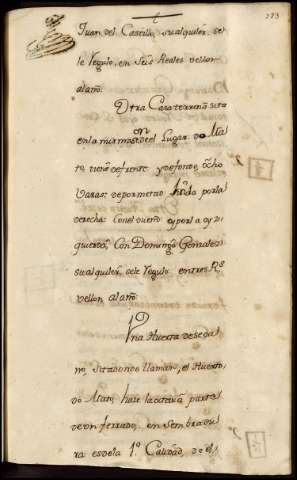 273
Juan del Castillo, su alquiler, se
le regulo, en Seis Reales vellon
al año.
Otra Casa terrena sita
en la misma del Lugar do
te tiene de frente y de fondo, ocho
Varas de por metad linda por la
derecha: Con el dueño y por la yz
quierda, Con Domingo Gonzalez
su alquiler, se le regulo en tres Rs
vellon al año.
Una Huerta de seca
no, Sitadonde llaman, el Huerto,
do hace la octava parte
de un ferrado, en Sembradu
ra es de la 1ª Calidad,